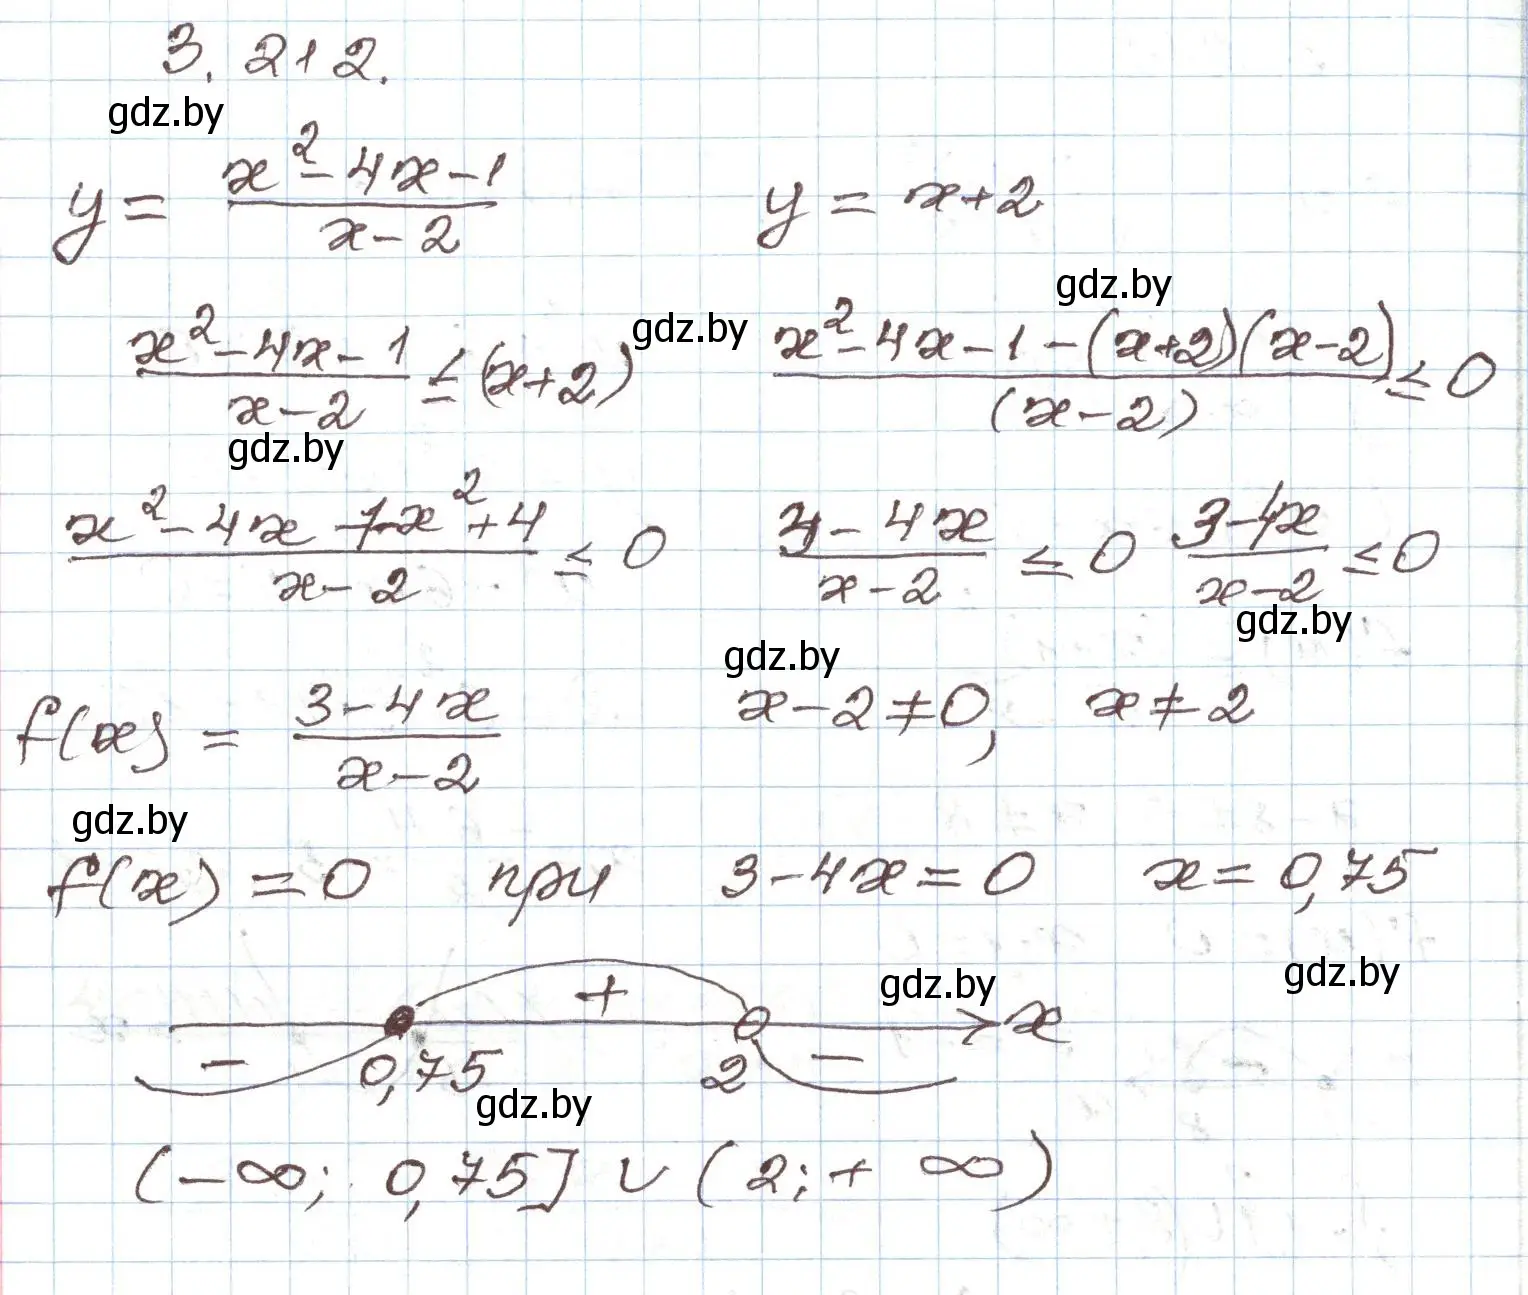 3.212.
gdz.by
y = (x² - 4x - 1)/(x - 2)    y = x+2
gdz.by
gdz.by
(x² - 4x - 1)/(x - 2) ≤ (x+2)    (x² - 4x - 1 - (x+2)(x-2))/((x-2)) ≤ 0
gdz.by
(x² - 4x - 1 - x² + 4)/(x - 2) ≤ 0    (3 - 4x)/(x - 2) ≤ 0    (3 - 4x)/(x - 2) ≤ 0
gdz.by
gdz.by
f(x) = (3 - 4x)/(x - 2)    x - 2 ≠ 0,    x ≠ 2
gdz.by
f(x) = 0    при    3 - 4x = 0    x = 0,75
gdz.by
gdz.by
- + - x
0,75    2
gdz.by
(-∞; 0,75] ∪ (2; +∞)